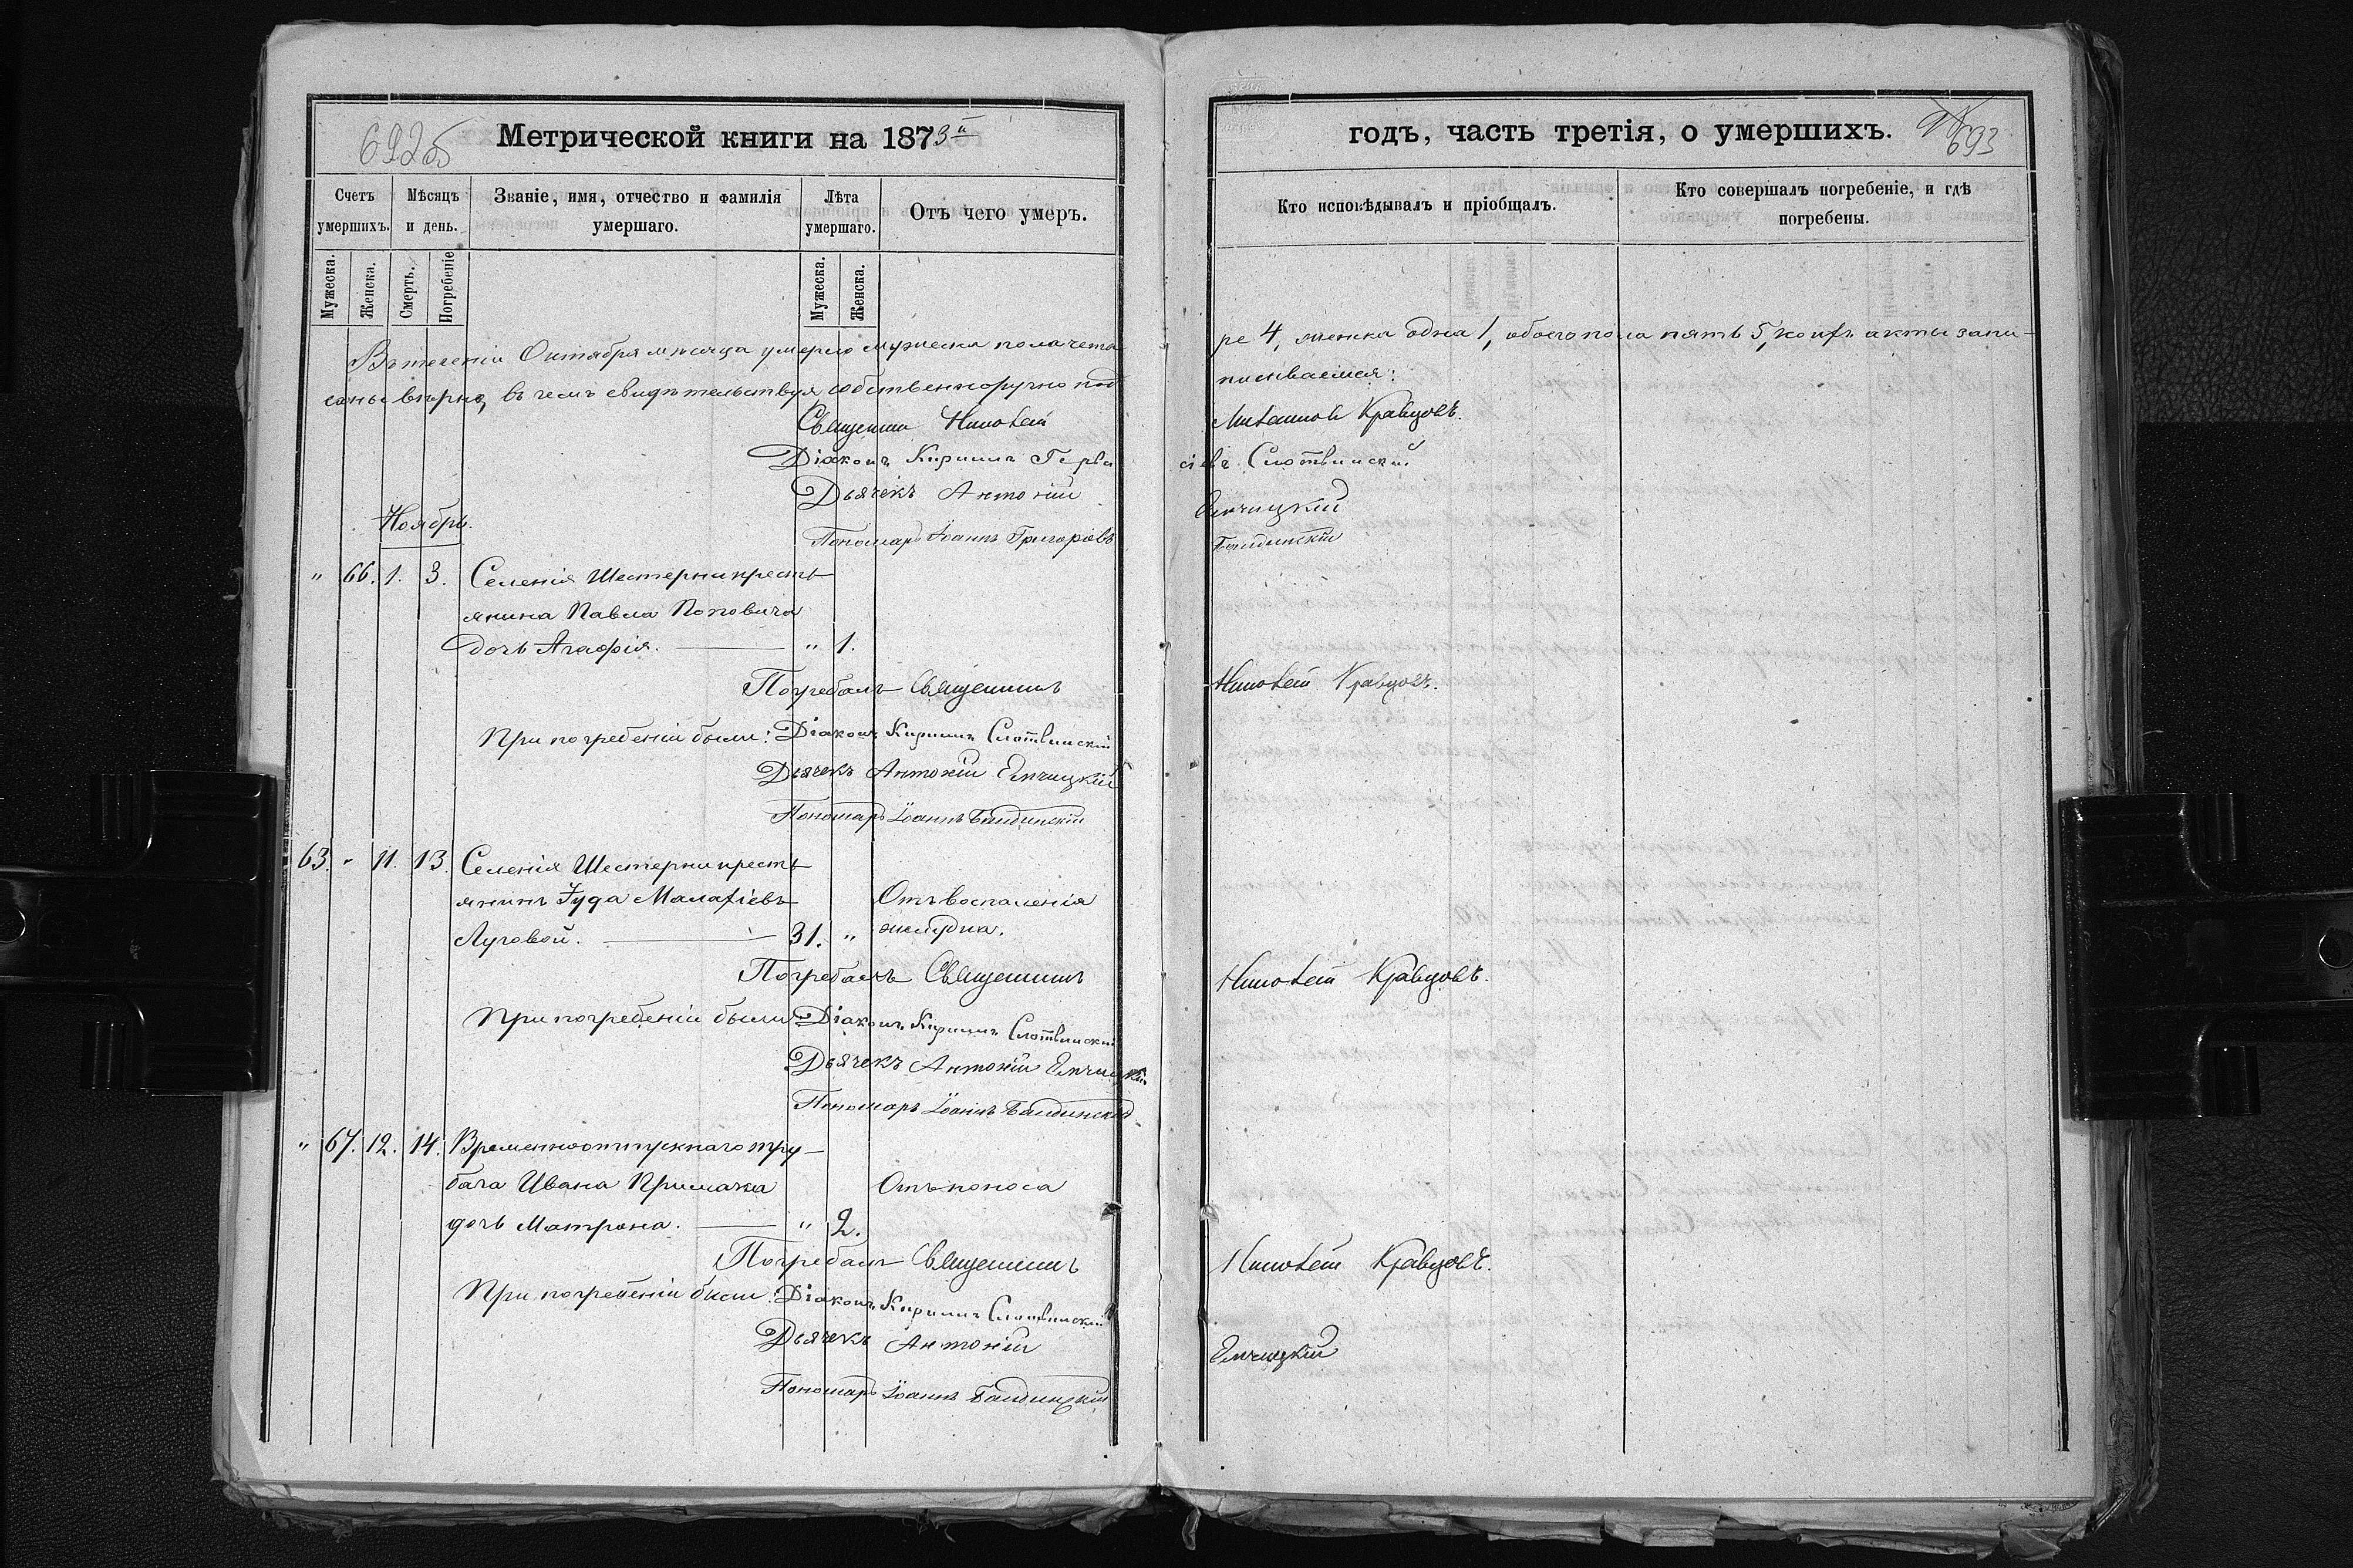 692об
Метрической книги на 1873й
годъ, часть третія, о умершихъ.
693
Счетъ умершихъ.
Мѣсяцъ и день.
Званіе, имя, отчество и фамилія умершаго.
Лѣта умершаго.
Отъ чего умеръ.
Кто исповѣдывалъ и пріобщалъ.
Кто совершалъ погребеніе, и гдѣ погребены.
Мужеска.
Женска.
Смерть.
Погребеніе
Мужеска.
Женска.
Въ теченіи Октября мѣсяца умерло мужеска пола четы
ре 4, женска одна 1, обоего пола пять 5, коихъ акты запи-
саны вѣрно, въ чемъ свидѣтельствуя собственноручно под
писываемся:
Священникъ Тимоѳей
Кравцовъ.
Діаконъ Кириллъ Герва
сіевъ Слотвинскій
Дьячекъ Антоній
Елчицкій
Ноябрь.
Пономарь Іоаннъ Григоріевъ
" 66. 1. 3. Селенія Шестерни кресть
янина Павла Поповича
дочь Агафія. " 1.
Погребалъ Священникъ
Тимоѳей Кравцовъ.
При погребеніи были: Діаконъ Кириллъ Слотвинскій
Дьячекъ Антоній Елчицкій
Пономарь Іоаннъ
63. " 11. 13. Селенія Шестерни кресть
янинъ Іуда Малафіевъ
Отъ воспаленія
Луговой. 31. " желудка.
Погребалъ Священникъ
Тимоѳей Кравцовъ.
При погребеніи были Діаконъ Кириллъ Слотвинскій
Дьячекъ Антоній Елчицкій
Пономарь Іоаннъ
" 67. 12. 14. Временноотпускнаго тру-
бача Ивана Примака
Отъ поноса
дочь Матрона. " 2.
Погребалъ Священникъ
Тимоѳей Кравцовъ.
При погребеніи были: Діаконъ Кириллъ Слотвинскій
Дьячекъ Антоній
Елчицкій
Пономарь Іоаннъ